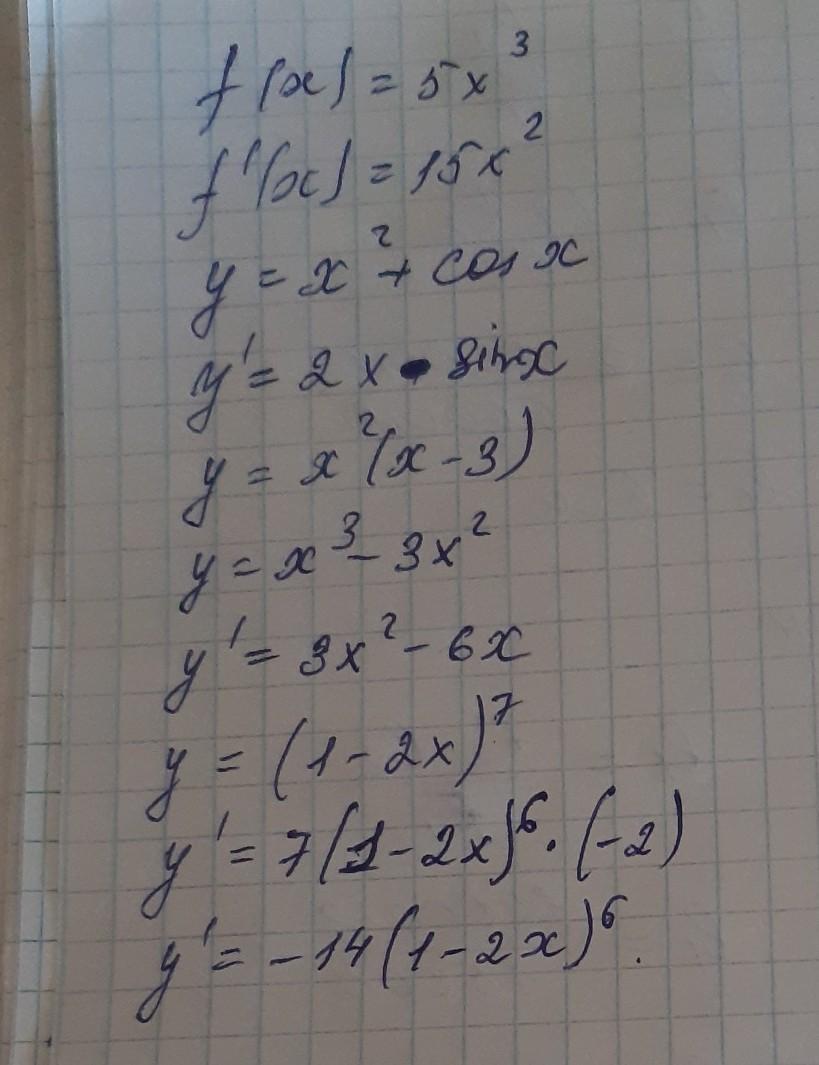 f(x) = 5x³
f'(x) = 15x²
y = x² + cos x
y' = 2x - sin x
y = x²(x - 3)
y = x³ - 3x²
y' = 3x² - 6x
y = (1 - 2x)⁷
y' = 7(1 - 2x)⁶ · (-2)
y' = -14(1 - 2x)⁶.